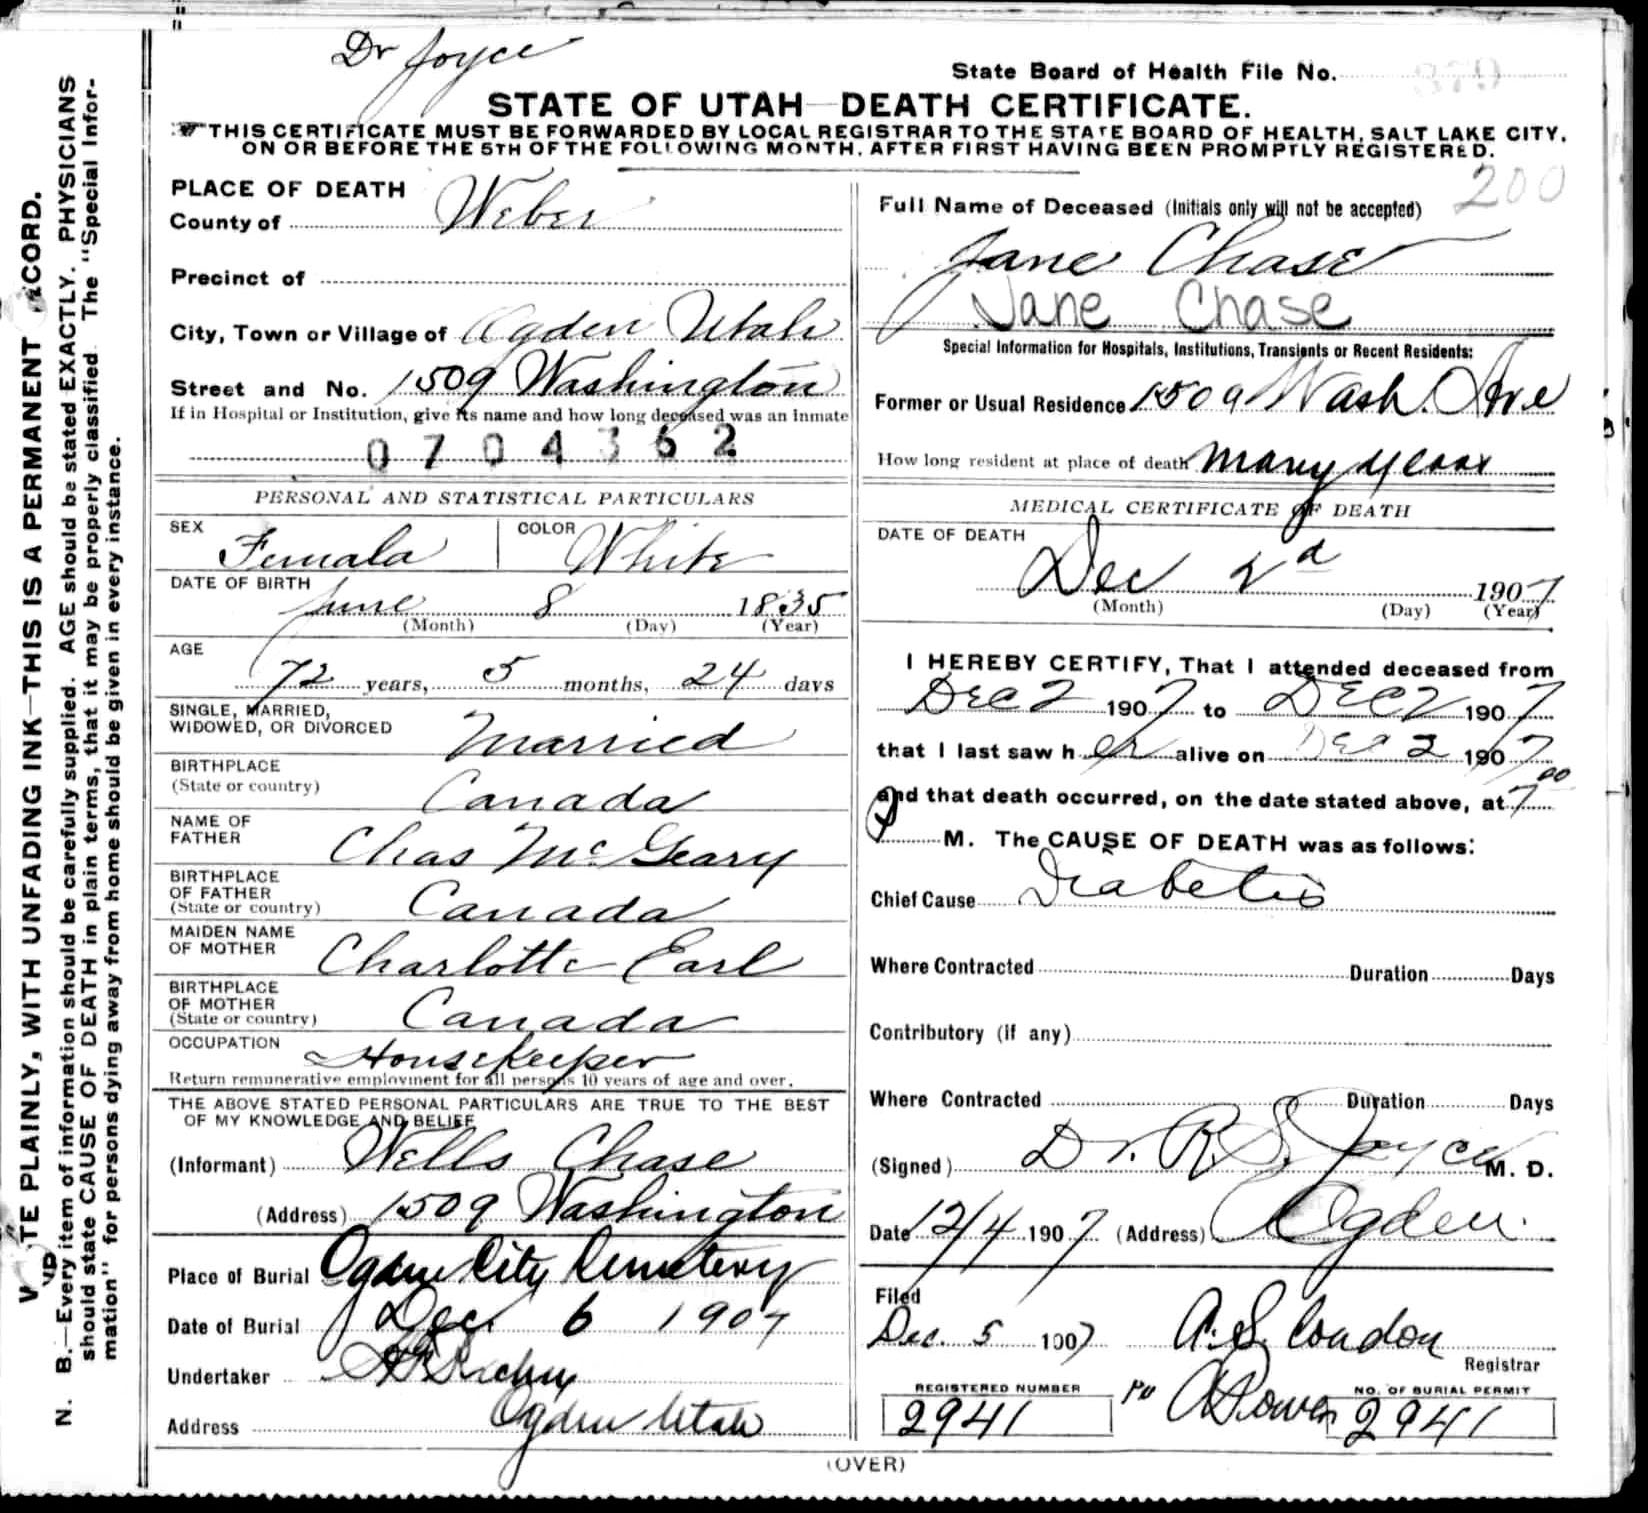 Dr Joyce
State Board of Health File No.
STATE OF UTAH—DEATH CERTIFICATE.
THIS CERTIFICATE MUST BE FORWARDED BY LOCAL REGISTRAR TO THE STATE BOARD OF HEALTH, SALT LAKE CITY,
ON OR BEFORE THE 5TH OF THE FOLLOWING MONTH, AFTER FIRST HAVING BEEN PROMPTLY REGISTERED.
PLACE OF DEATH
County of Weber
Precinct of
City, Town or Village of Ogden Utah
Street and No. 1509 Washington
If in Hospital or Institution, give its name and how long deceased was an inmate
0704362
PERSONAL AND STATISTICAL PARTICULARS
SEX Female COLOR White
DATE OF BIRTH
June 8 1835
(Month) (Day) (Year)
AGE
72 years, 5 months, 24 days
SINGLE, MARRIED,
WIDOWED, OR DIVORCED Married
BIRTHPLACE
(State or country) Canada
NAME OF
FATHER Chas McGeary
BIRTHPLACE
OF FATHER
(State or country) Canada
MAIDEN NAME
OF MOTHER Charlotte Earl
BIRTHPLACE
OF MOTHER
(State or country) Canada
OCCUPATION Housekeeper
Return remunerative employment for all persons 10 years of age and over.
THE ABOVE STATED PERSONAL PARTICULARS ARE TRUE TO THE BEST
OF MY KNOWLEDGE AND BELIEF
(Informant) Wells Chase
(Address) 1509 Washington
Place of Burial Ogden City Cemetery
Date of Burial Dec. 6 1907
Undertaker
Address Ogden Utah
200
Full Name of Deceased (Initials only will not be accepted)
Jane Chase
Jane Chase
Special Information for Hospitals, Institutions, Transients or Recent Residents:
Former or Usual Residence 1509 Wash. Ave
How long resident at place of death many years
MEDICAL CERTIFICATE OF DEATH
DATE OF DEATH
Dec 2d 1907
(Month) (Day) (Year)
I HEREBY CERTIFY, That I attended deceased from
Dec 2 1907 to Dec 2 1907
that I last saw her alive on Dec 2 1907
and that death occurred, on the date stated above, at 7 00
P M. The CAUSE OF DEATH was as follows:
Chief Cause Diabetis
Where Contracted Duration Days
Contributory (if any)
Where Contracted Duration Days
(Signed) Dr. R. S. Joyce M. D.
Date 12/4 1907 (Address) Ogden
Filed
Dec. 5 1907 A. S. Condon
Registrar
REGISTERED NUMBER 2941
NO. OF BURIAL PERMIT 2941
(OVER)
WRITE PLAINLY, WITH UNFADING INK—THIS IS A PERMANENT RECORD.
N. B.—Every item of information should be carefully supplied. AGE should be stated EXACTLY. PHYSICIANS
should state CAUSE OF DEATH in plain terms, that it may be properly classified. The "Special Infor-
mation" for persons dying away from home should be given in every instance.